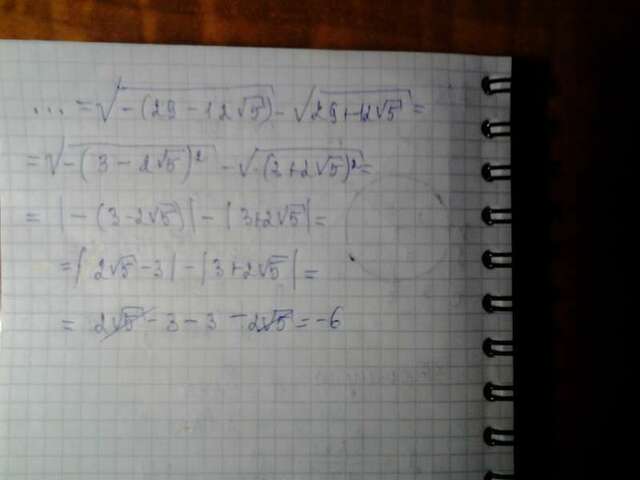 ... = √(-(29 - 12√5)) - √(29+12√5) =
= √(-(3 - 2√5)²) - √((2+2√5)²) =
= |-(3-2√5)| - |3+2√5| =
= |2√5-3| - |3+2√5| =
= 2√5 - 3 - 3 - 2√5 = -6